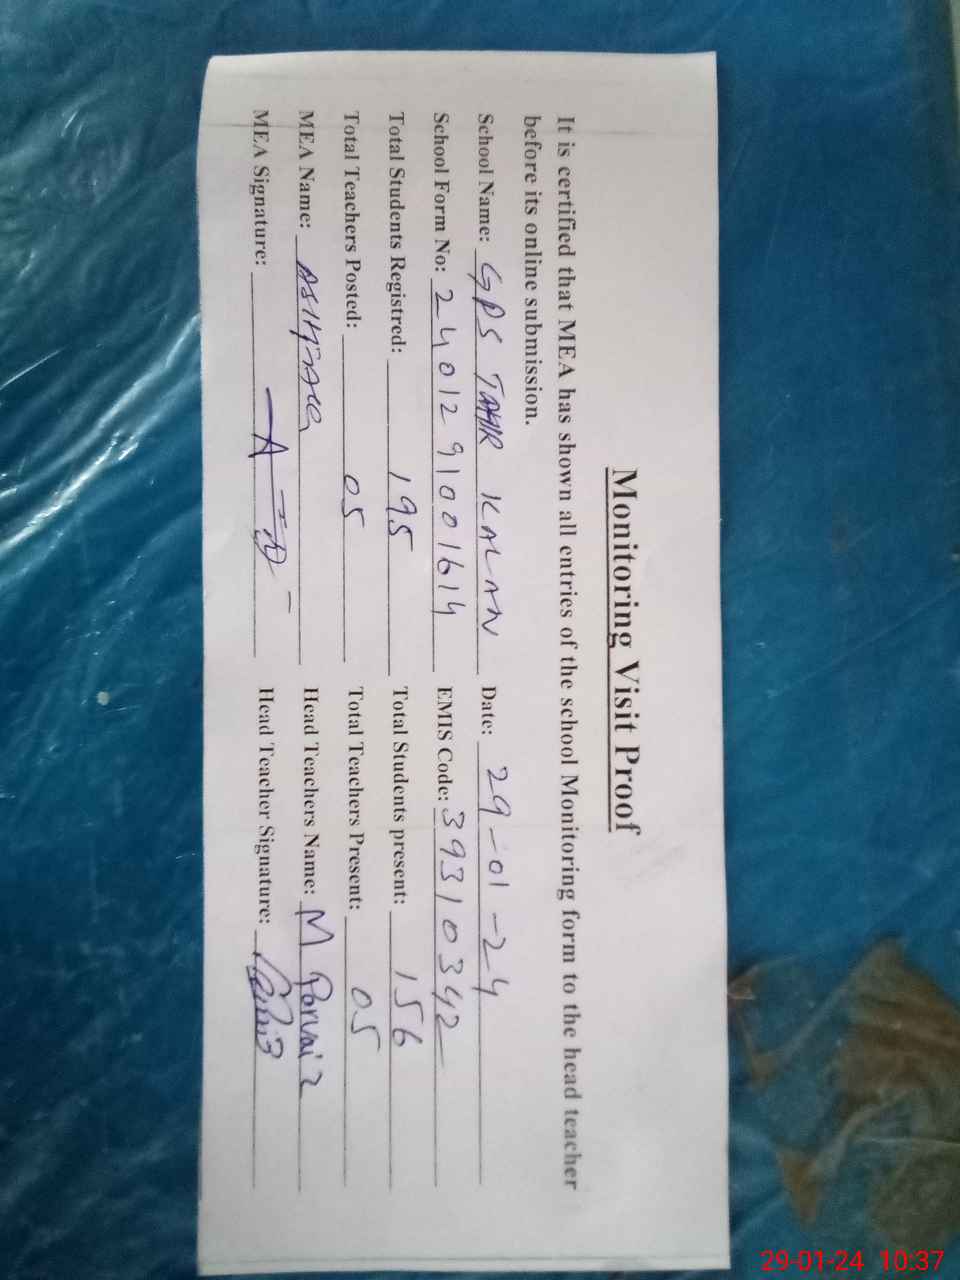 Monitoring Visit Proof
It is certified that MEA has shown all entries of the school Monitoring form to the head teacher
before its online submission.
School Name: GPS TAHIR KALAN Date: 29-01-24
School Form No: 2401291001614 EMIS Code: 39310342
Total Students Registred: 195 Total Students present: 156
Total Teachers Posted: 05 Total Teachers Present: 05
MEA Name: Head Teachers Name: M Parvaiz
MEA Signature: Head Teacher Signature:
29-01-24 10:37